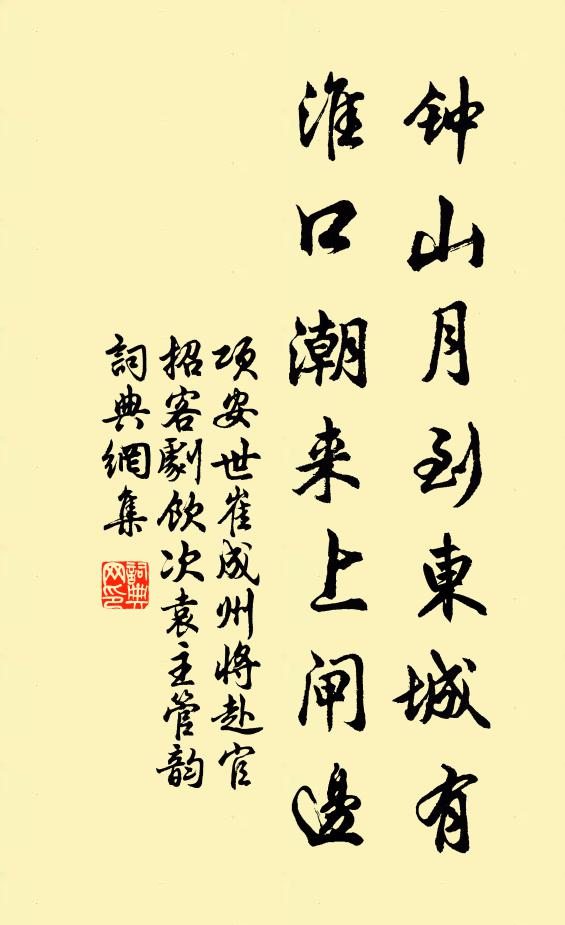 钟山月到東城有
淮口潮来上闸邊
项安世崔成州将赴官
招客劇飲次袁主管韵
詞典網集
詞典
网印